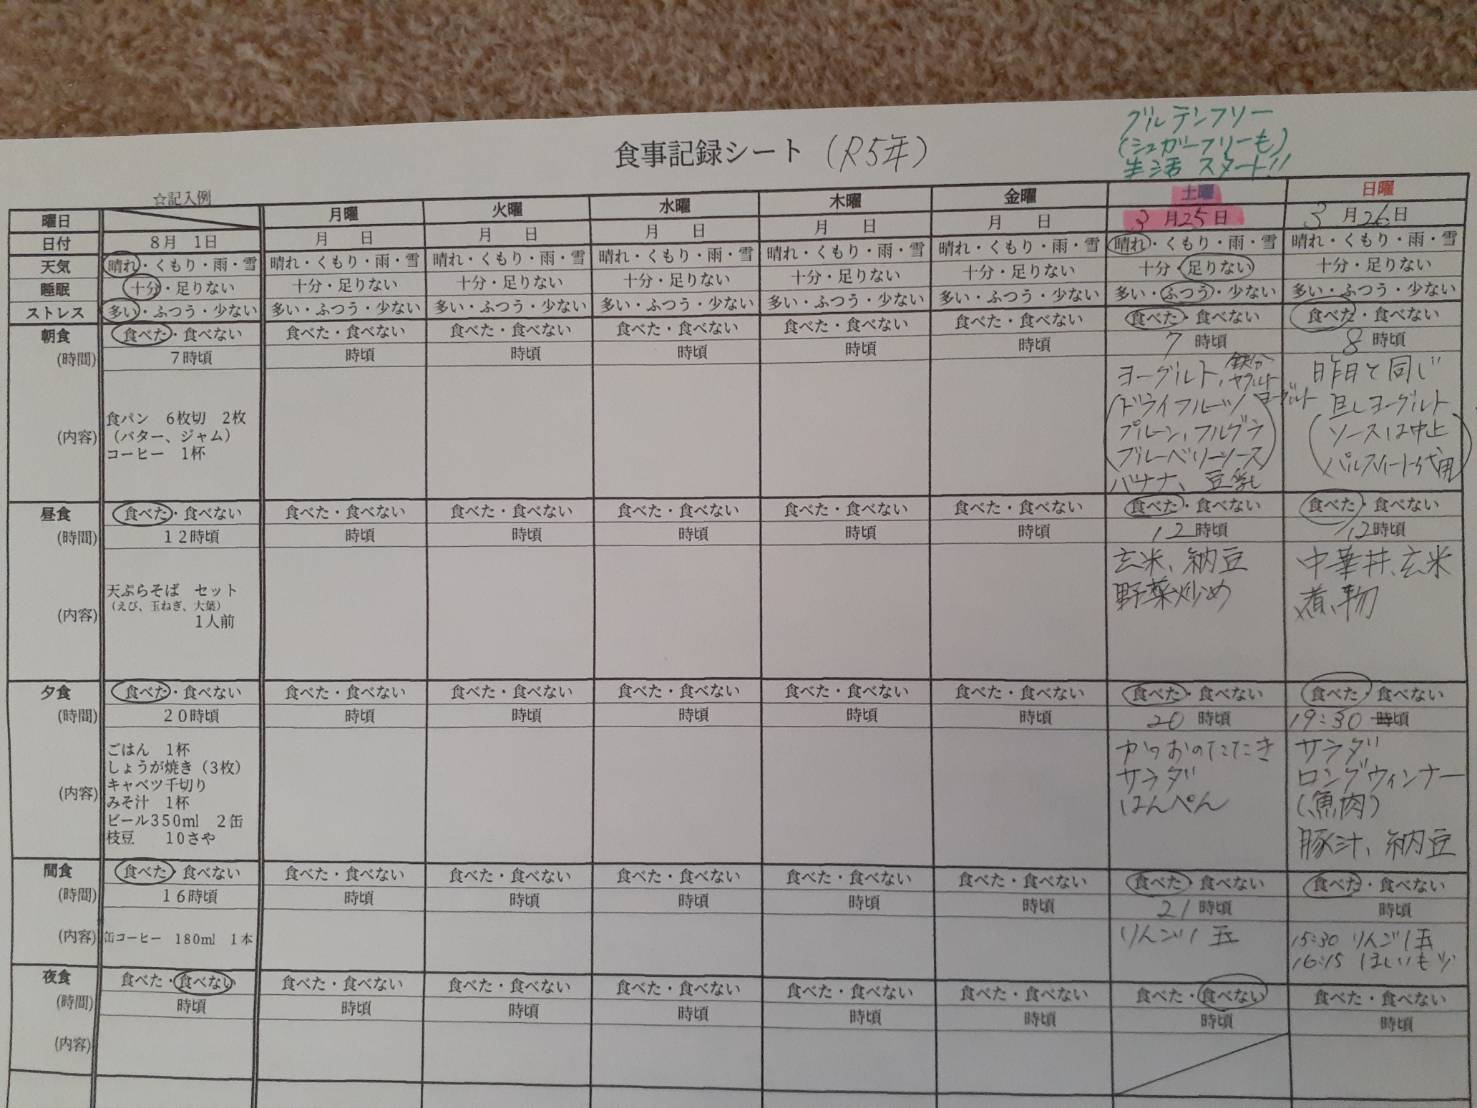 グルテンフリー
(シュガーフリーも)
生活 スタート!!
食事記録シート (R5年)
☆記入例
曜日 月曜 火曜 水曜 木曜 金曜 土曜 日曜
日付 8月 1日 月 日 月 日 月 日 月 日 月 日 3月25日 3月26日
天気 晴れ・くもり・雨・雪 晴れ・くもり・雨・雪 晴れ・くもり・雨・雪 晴れ・くもり・雨・雪 晴れ・くもり・雨・雪 晴れ・くもり・雨・雪 晴れ・くもり・雨・雪 晴れ・くもり・雨・雪
睡眠 十分・足りない 十分・足りない 十分・足りない 十分・足りない 十分・足りない 十分・足りない 十分・足りない 十分・足りない
ストレス 多い・ふつう・少ない 多い・ふつう・少ない 多い・ふつう・少ない 多い・ふつう・少ない 多い・ふつう・少ない 多い・ふつう・少ない 多い・ふつう・少ない 多い・ふつう・少ない
朝食 食べた・食べない 食べた・食べない 食べた・食べない 食べた・食べない 食べた・食べない 食べた・食べない 食べた・食べない 食べた・食べない
(時間) 7時頃 時頃 時頃 時頃 時頃 時頃 7 時頃 8 時頃
(内容)
食パン 6枚切 2枚
(バター、ジャム)
コーヒー 1杯
ヨーグルト、鉄分ヤクルトヨーグルト
(ドライフルーツ
プルーン、フルグラ
ブルーベリーソース)
バナナ、豆乳
昨日と同じ
旦しヨーグルト
(ソースは中止
パルスイート代用)
昼食 食べた・食べない 食べた・食べない 食べた・食べない 食べた・食べない 食べた・食べない 食べた・食べない 食べた・食べない 食べた・食べない
(時間) 12時頃 時頃 時頃 時頃 時頃 時頃 12 時頃 12時頃
(内容)
天ぷらそば セット
(えび、玉ねぎ、大葉)
1人前
玄米、納豆
野菜炒め
中華丼、玄米
煮物
夕食 食べた・食べない 食べた・食べない 食べた・食べない 食べた・食べない 食べた・食べない 食べた・食べない 食べた・食べない 食べた・食べない
(時間) 20時頃 時頃 時頃 時頃 時頃 時頃 20 時頃 19:30 時頃
(内容)
ごはん 1杯
しょうが焼き (3枚)
キャベツ千切り
みそ汁 1杯
ビール350ml 2缶
枝豆 10さや
かつおのたたき
サラダ
はんぺん
サラダ
ロングウィンナー
(魚肉)
豚汁、納豆
間食 食べた・食べない 食べた・食べない 食べた・食べない 食べた・食べない 食べた・食べない 食べた・食べない 食べた・食べない 食べた・食べない
(時間) 16時頃 時頃 時頃 時頃 時頃 時頃 21 時頃 時頃
(内容)
缶コーヒー 180ml 1本
りんご1玉
15:30 りんご1玉
16:15 ほしいもツ
夜食 食べた・食べない 食べた・食べない 食べた・食べない 食べた・食べない 食べた・食べない 食べた・食べない 食べた・食べない 食べた・食べない
(時間) 時頃 時頃 時頃 時頃 時頃 時頃 時頃 時頃
(内容)